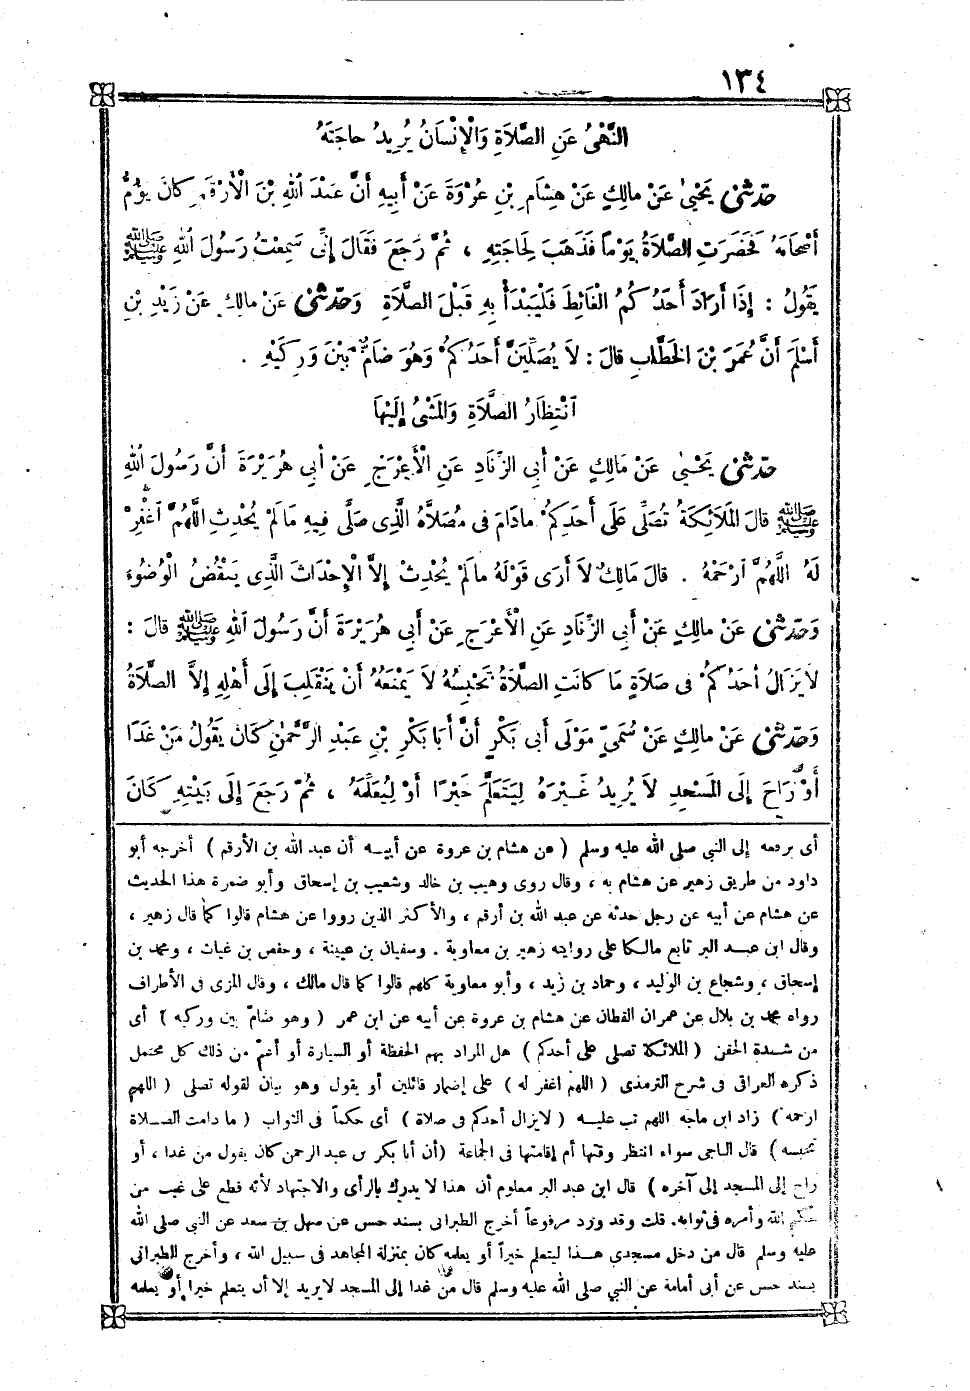 ١٣٤
النَّهْىُ عَنِ الصَّلَاةِ وَالْإِنْسَانُ يُرِيدُ حاجَتَهُ
حدّثنى يَحْيَى عَنْ مالِكٍ عَنْ هِشَامِ بْنِ عُرْوَةَ عَنْ أَبِيهِ أَنَّ عَبْدَ اللهِ بْنَ الْأَرْقَمِ كانَ يَؤُمُّ
أَصْحَابَهُ فَحَضَرَتِ الصَّلَاةُ يَوْمًا فَذَهَبَ لِحَاجَتِهِ ، ثُمَّ رَجَعَ فَقَالَ إِنِّى سَمِعْتُ رَسُولَ اللهِ ﷺ
يَقُولُ : إِذَا أَرَادَ أَحَدُكُمُ الْغَائِطَ فَلْيَبْدَأْ بِهِ قَبْلَ الصَّلَاةِ وَحدّثنى عَنْ مالِكٍ عَنْ زَيْدِ بْنِ
أَسْلَمَ أَنَّ عُمَرَ بْنَ الخَطَّابِ قالَ : لاَ يُصَلِّيَنَّ أَحَدُكُمْ وَهُوَ ضَامٌّ بَيْنَ وَرِكَيْهِ .
اَنْتِظَارُ الصَّلَاةِ وَالمَشْىُ إِلَيْهَا
حدّثنى يَحْيَى عَنْ مَالِكٍ عَنْ أَبِى الزِّنَادِ عَنِ الْأَعْرَجِ عَنْ أَبِى هُرَيْرَةَ أَنَّ رَسُولَ اللهِ
ﷺ قالَ المَلَائِكَةُ تُصَلِّى عَلَى أَحَدِكُمْ مادَامَ فى مُصَلَّاهُ الَّذِى صَلَّى فِيهِ مَالَمْ يُحْدِثِ اللَّهُمَّ اَغْفِرْ
لَهُ اللَّهُمَّ اَرْحَمْهُ . قالَ مَالِكٌ لاَ أَرَى قَوْلَهُ مالَمْ يُحْدِثْ إِلاَّ الْإِحْدَاثَ الَّذِى يَنْقُضُ الْوُضُوءَ
وَحدّثنى عَنْ مالِكٍ عَنْ أَبِى الزِّنَادِ عَنِ الْأَعْرَجِ عَنْ أَبِى هُرَيْرَةَ أَنَّ رَسُولَ اللهِ ﷺ قالَ :
لاَيَزَالُ أَحَدُكُمْ فى صَلَاةٍ مَا كانَتِ الصَّلَاةُ تَحْبِسُهُ لاَ يَمْنَعُهُ أَنْ يَنْقَلِبَ إِلَى أَهْلِهِ إِلاَّ الصَّلَاةُ
وَحدّثنى عَنْ مالِكٍ عَنْ سُمَىٍّ مَوْلَى أَبِى بَكْرٍ أَنَّ أَبَا بَكْرِ بْنِ عَبْدِ الرَّحْمٰنِ كانَ يَقُولُ مَنْ غَدَا
أَوْ رَاحَ إِلَى المَسْجِدِ لاَ يُرِيدُ غَيْرَهُ لِيَتَعَلَّمَ خَيْرًا أَوْ لِيُعَلِّمَهُ ، ثُمَّ رَجَعَ إِلَى بَيْتِهِ كَانَ
أى يرفعه إلى النبي صلى الله عليه وسلم ( عن هشام بن عروة عن أبيــه أن عبد الله بن الأرقم ) أخرجه أبو
داود من طريق زهير عن هشام به ، وقال روى وهيب بن خالد وشعيب بن إسحاق وأبو ضمرة هذا الحديث
عن هشام عن أبيه عن رجل حدثه عن عبد الله بن أرقم ، والأكثر الذين رووا عن هشام قالوا كما قال زهير ،
وقال ابن عبــد البر تابع مالـكا على روايته زهير بن معاوية . وسفيان بن عيينة ، وحفص بن غياث ، ومحمد بن
إسحاق ، وشجاع بن الوليد ، وحماد بن زيد ، وأبو معاوية كلهم قالوا كما قال مالك ، وقال المزى فى الأطراف
رواه محمد بن بلال عن عمران القطان عن هشام بن عروة عن أبيه عن ابن عمر ( وهو ضامّ بين وركيه ) أى
من شــدة الحقن ( الملائكة تصلى على أحدكم ) هل المراد بهم الحفظة أو السيارة أو أعمّ من ذلك كل محتمل
ذكره العراقى فى شرح الترمذى ( اللهم اغفر له ) على إضمار قائلين أو يقول وهو بيان لقوله تصلى ( اللهم
ارحمه ) زاد ابن ماجه اللهم تب عليــه ( لايزال أحدكم فى صلاة ) أى حكماً فى الثواب ( ما دامت الصــلاة
تحبسه ) قال الباجى سواء انتظر وقتها أم إقامتها فى الجماعة ( أن أبا بكر بن عبد الرحمن كان يقول من غدا ، أو
راح إلى المسجد إلى آخره ) قال ابن عبد البر معلوم أن هذا لا يدرك بالرأى والاجتهاد لأنه قطع على غيب من
حكم الله وأمره فى ثوابه. قلت وقد ورد مرفوعاً أخرج الطبرانى بسند حسن عن سهل بن سعد عن النبي صلى الله
عليه وسلم قال من دخل مسجدى هــذا ليتعلم خيراً أو يعلمه كان بمنزلة المجاهد فى سبيل الله ، وأخرج الطبرانى
بسند حسن عن أبى أمامة عن النبي صلى الله عليه وسلم قال من غدا إلى المسجد لايريد إلا أن يتعلم خيرا أو يعلمه